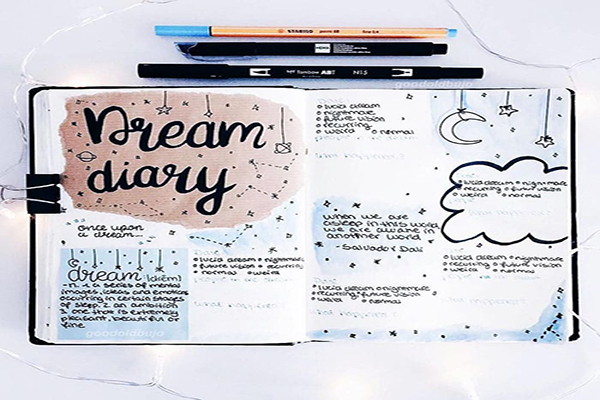 STABILO point 88 fine 0,4
Tombow ABT N15
goodoldbujo
Dream
diary
once upon
a dream...
dream [driēm]
-n. 1. a series of mental
images, ideas and emotions
occurring in certain stages
of sleep 2. an ambition
3. one that is extremely
pleasant, beautiful or
fine
goodoldbujo
lucid dream nightmare
future vision recurring
normal weird
people in the dream:
what happened?
Date:
lucid dream
nightmare
future vision
recurring
weird normal
people in the dream:
what happened?
when we are
asleep in this world,
we are awake in
another world
-Salvador Dali
Date:
lucid dream nightmare
recurring future vision
weird normal
what happened?
lucid dream nightmare
recurring future vision
weird normal
what happened?
lucid dream nightmare
recurring future vision
weird normal
what happened?